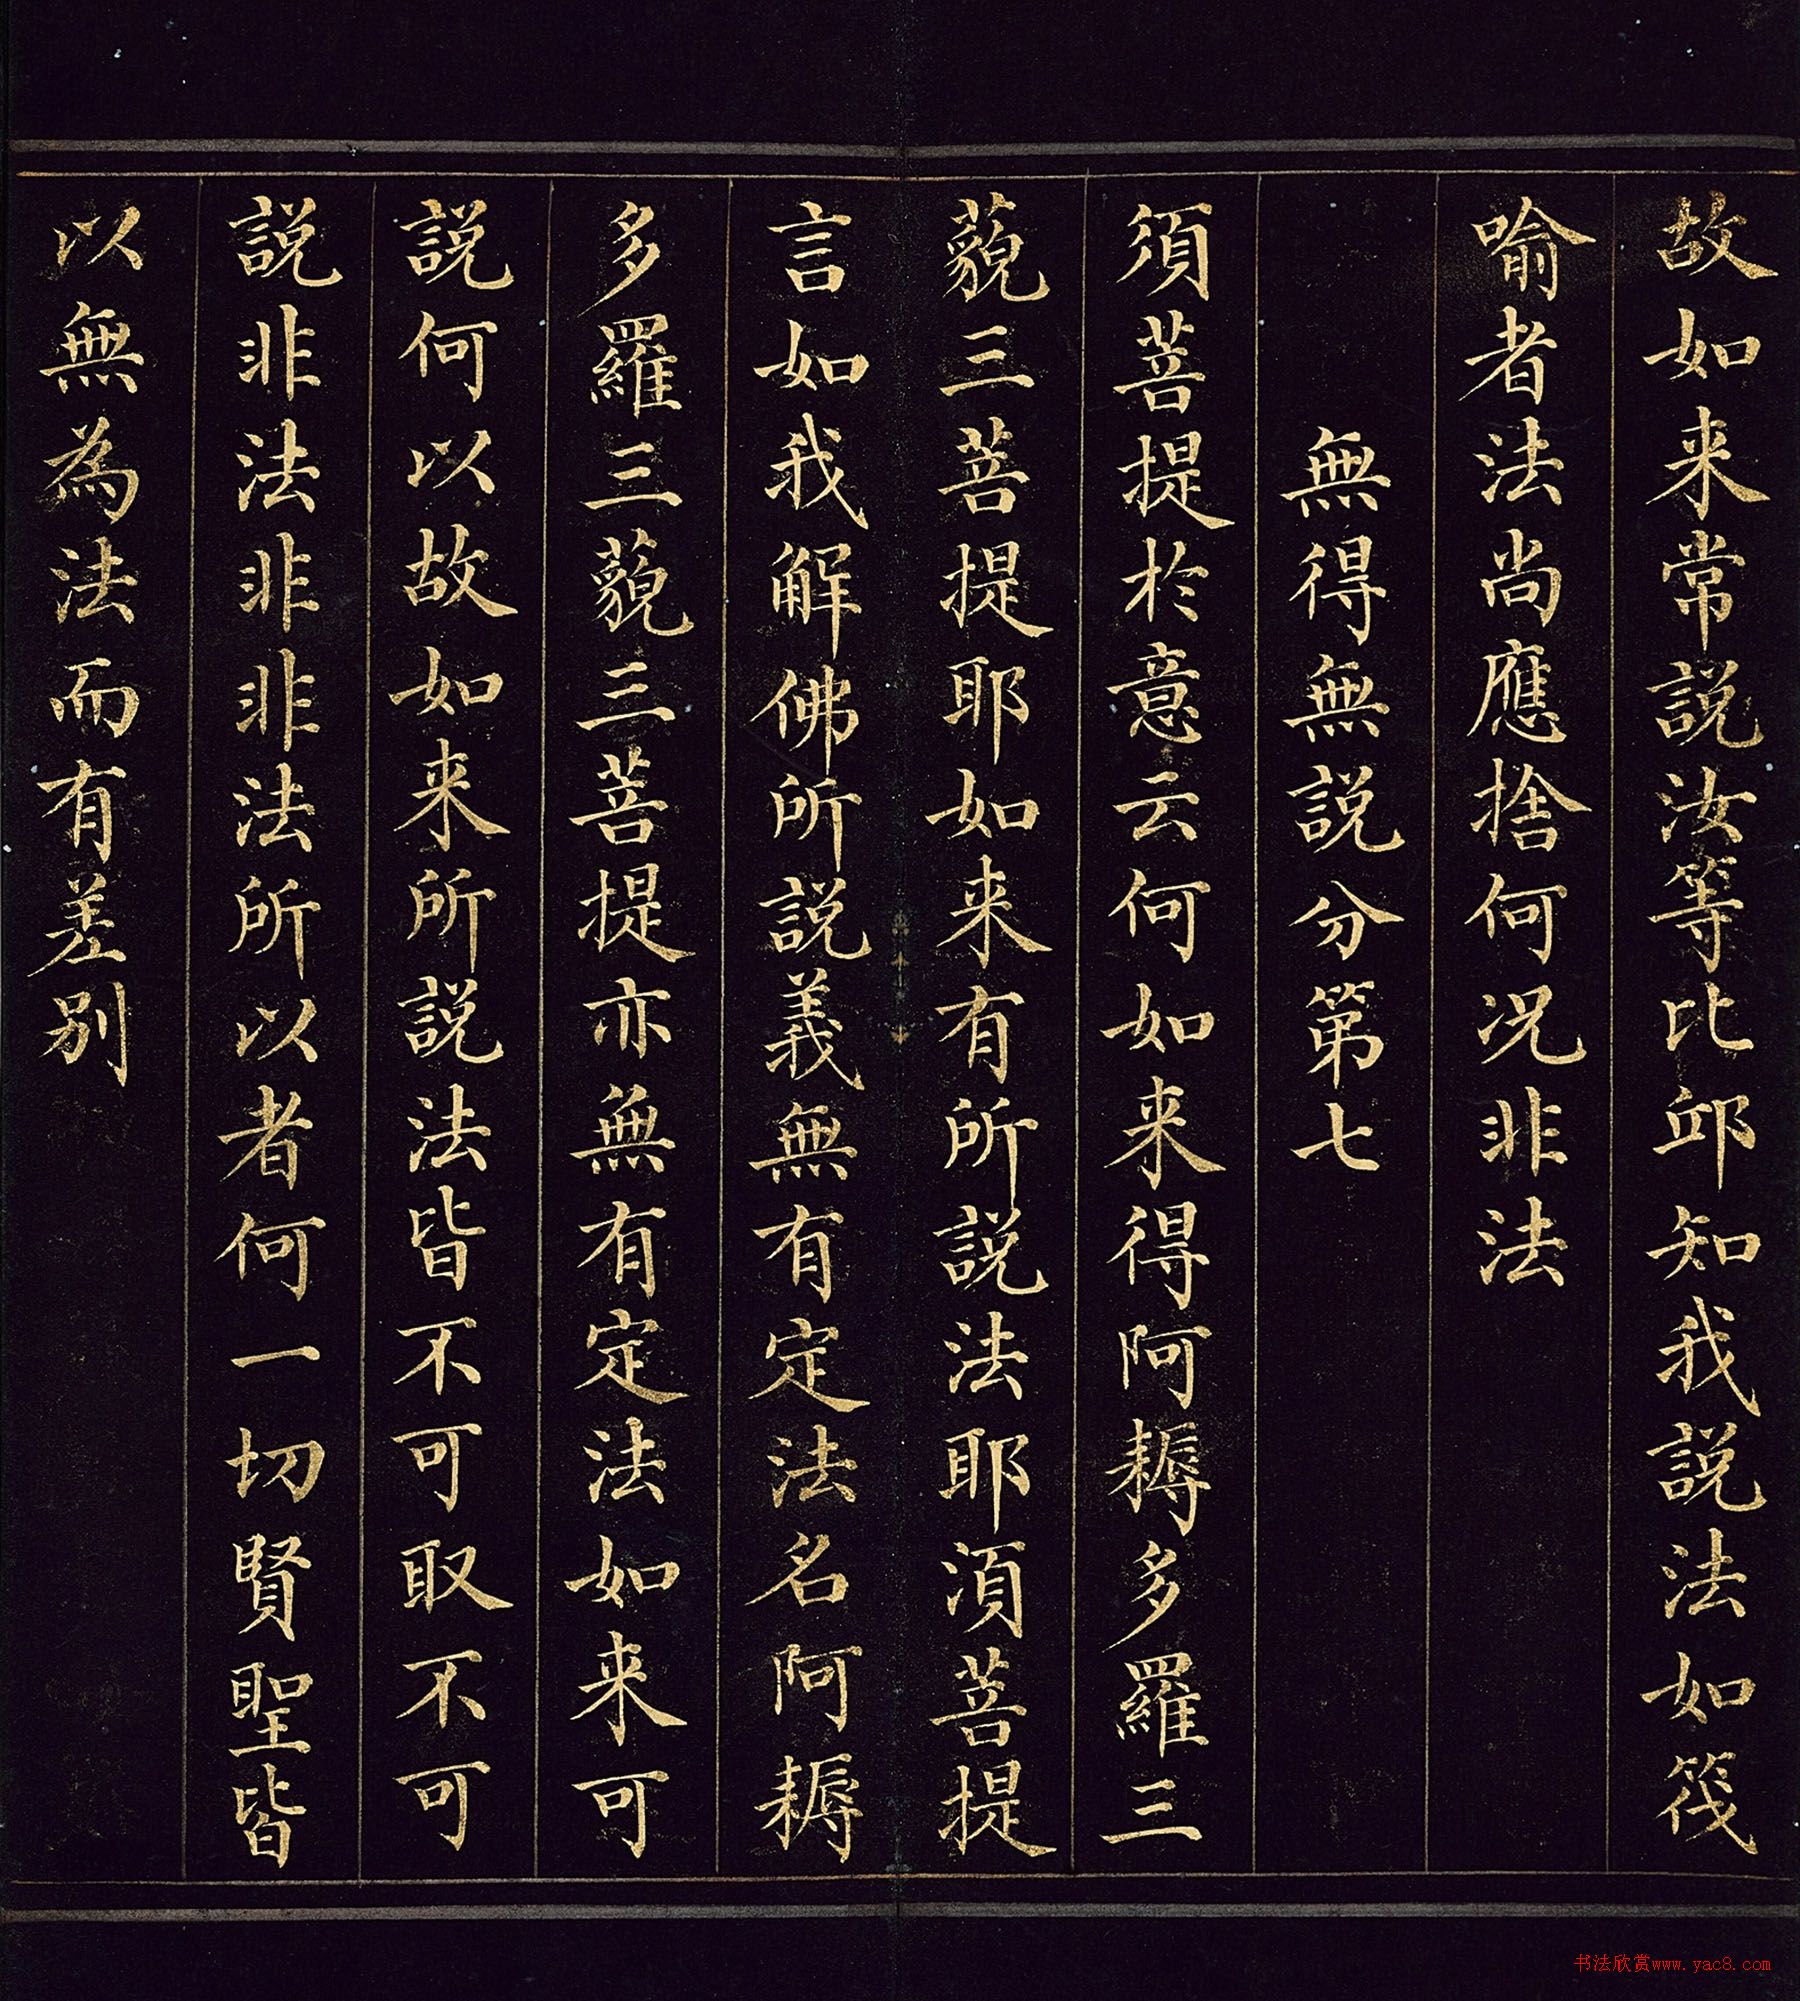 故如来常說汝等比邱知我說法如筏
喻者法尚應捨何况非法
無得無說分第七
須菩提於意云何如来得阿耨多羅三
藐三菩提耶如来有所說法耶須菩提
言如我解佛所說義無有定法名阿耨
多羅三藐三菩提亦無有定法如来可
說何以故如来所說法皆不可取不可
說非法非非法所以者何一切賢聖皆
以無為法而有差别
书法欣赏www.yac8.com